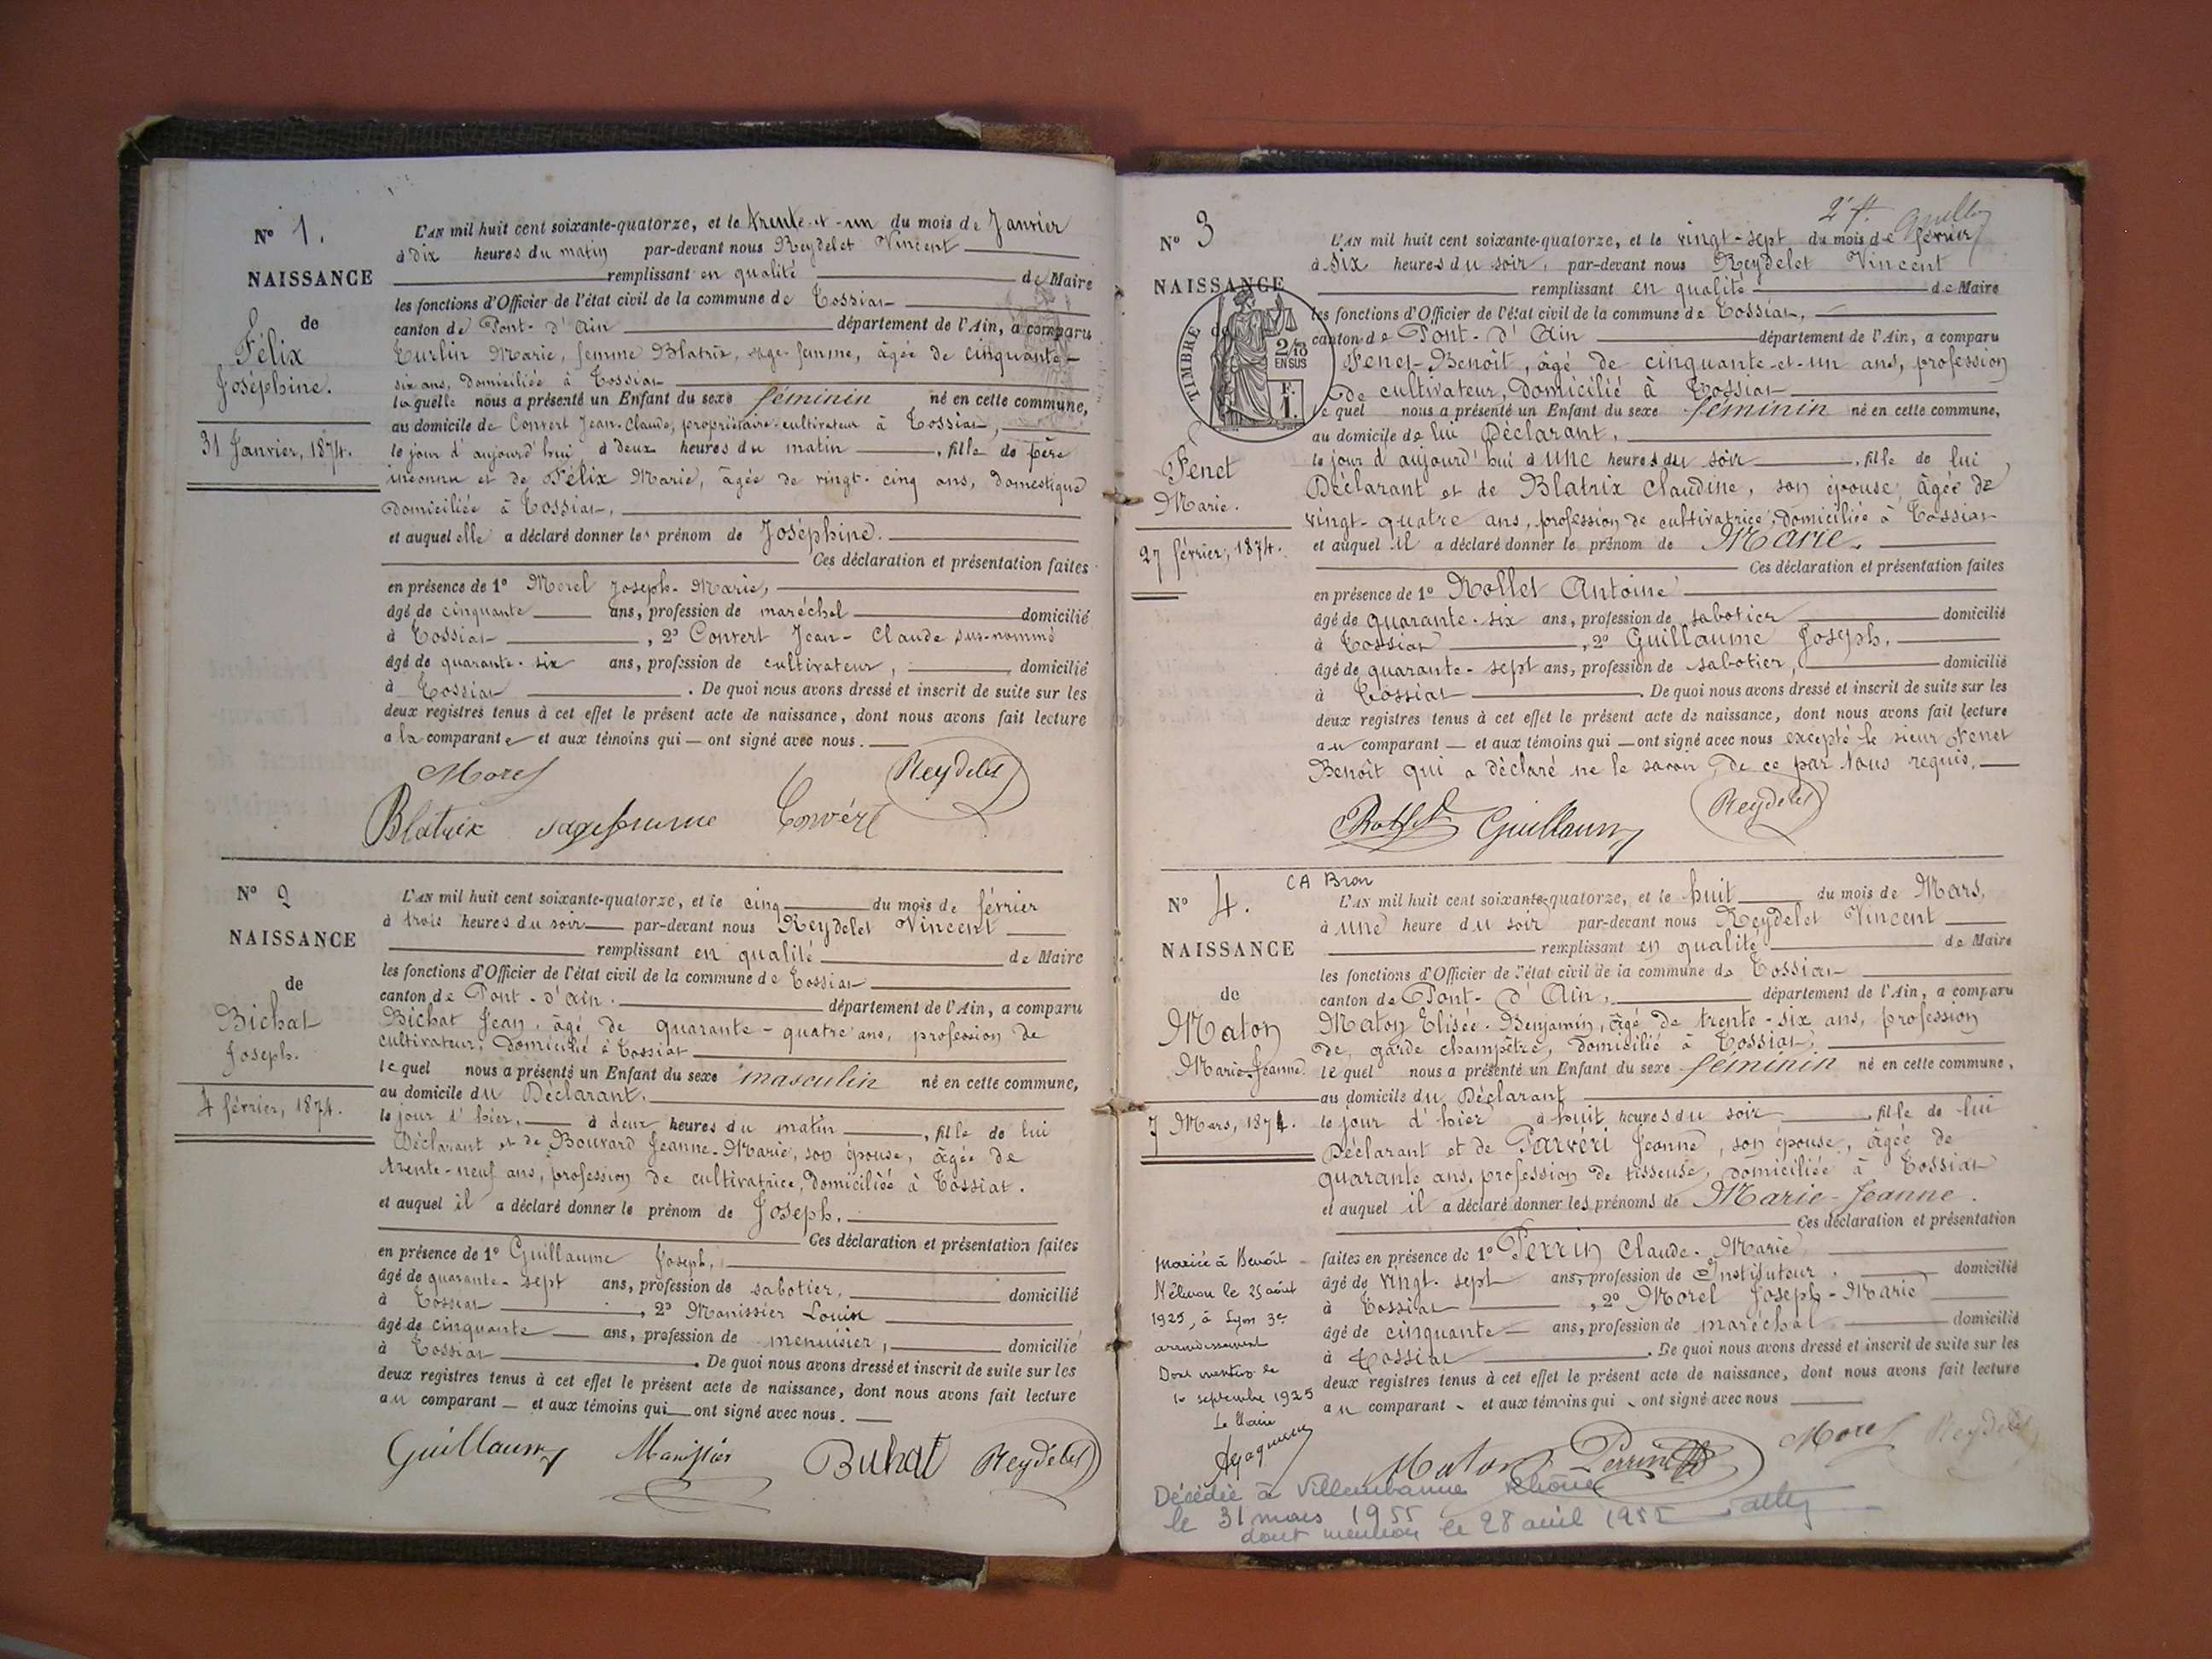 N° 1.
NAISSANCE
de
Félix
Joséphine.
31 Janvier, 1874.
L'AN mil huit cent soixante-quatorze, et le trente-et-un du mois de Janvier
à dix heures du matin par-devant nous Reydelet Vincent
remplissant en qualité de Maire
les fonctions d'Officier de l'état civil de la commune de Tossiat
canton de Pont-d'Ain département de l'Ain, a comparu
Turlin Marie, femme Blatrix, sage-femme, âgée de cinquante-
six ans, domiciliée à Tossiat
laquelle nous a présenté un Enfant du sexe féminin né en cette commune,
au domicile de Convert Jean-Claude, propriétaire-cultivateur à Tossiat,
le jour d'aujourd'hui à deux heures du matin, fille de père
inconnu et de Félix Marie, âgée de vingt-cinq ans, domestique
domiciliée à Tossiat,
et auquel elle a déclaré donner le prénom de Joséphine.
Ces déclaration et présentation faites
en présence de 1° Morel Joseph-Marie,
âgé de cinquante ans, profession de maréchal domicilié
à Tossiat, 2° Convert Jean-Claude sus-nommé
âgé de quarante-six ans, profession de cultivateur, domicilié
à Tossiat. De quoi nous avons dressé et inscrit de suite sur les
deux registres tenus à cet effet le présent acte de naissance, dont nous avons fait lecture
a la comparante et aux témoins qui — ont signé avec nous.
Morel Reydelet
Blatrix sagefemme Convert
N° 2
NAISSANCE
de
Bichat
Joseph.
4 février, 1874.
L'AN mil huit cent soixante-quatorze, et le cinq du mois de février
à trois heures du soir par-devant nous Reydelet Vincent
remplissant en qualité de Maire
les fonctions d'Officier de l'état civil de la commune de Tossiat
canton de Pont-d'Ain. département de l'Ain, a comparu
Bichat Jean, âgé de quarante-quatre ans, profession de
cultivateur, domicilié à Tossiat
lequel nous a présenté un Enfant du sexe masculin né en cette commune,
au domicile du Déclarant.
le jour d'hier, à deux heures du matin, fille de lui
Déclarant et de Bouvard Jeanne-Marie, son épouse, âgée de
trente-neuf ans, profession de cultivatrice, domiciliée à Tossiat.
et auquel il a déclaré donner le prénom de Joseph.
Ces déclaration et présentation faites
en présence de 1° Guillaume Joseph,
âgé de quarante-sept ans, profession de sabotier, domicilié
à Tossiat, 2° Manissier Louis
âgé de cinquante ans, profession de menuisier, domicilié
à Tossiat. De quoi nous avons dressé et inscrit de suite sur les
deux registres tenus à cet effet le présent acte de naissance, dont nous avons fait lecture
au comparant — et aux témoins qui — ont signé avec nous.
Guillaume Manissier Bichat Reydelet
2e ft.
N° 3
NAISSANCE
de
TIMBRE
2/10
EN SUS
F.
1.
Fenet
Marie.
27 février, 1874.
L'AN mil huit cent soixante-quatorze, et le vingt-sept du mois de février
à six heures du soir, par-devant nous Reydelet Vincent
remplissant en qualité de Maire
les fonctions d'Officier de l'état civil de la commune de Tossiat,
canton de Pont-d'Ain département de l'Ain, a comparu
Fenet Benoît, âgé de cinquante-et-un ans, profession
de cultivateur, domicilié à Tossiat
lequel nous a présenté un Enfant du sexe féminin né en cette commune,
au domicile de lui Déclarant.
le jour d'aujourd'hui à une heures du soir, fille de lui
Déclarant et de Blatrix Claudine, son épouse, âgée de
vingt-quatre ans, profession de cultivatrice, domiciliée à Tossiat
et auquel il a déclaré donner le prénom de Marie.
Ces déclaration et présentation faites
en présence de 1° Rollet Antoine
âgé de quarante-six ans, profession de sabotier domicilié
à Tossiat, 2° Guillaume Joseph,
âgé de quarante-sept ans, profession de sabotier, domicilié
à Tossiat. De quoi nous avons dressé et inscrit de suite sur les
deux registres tenus à cet effet le présent acte de naissance, dont nous avons fait lecture
au comparant — et aux témoins qui — ont signé avec nous excepté le sieur Fenet
Benoît qui a déclaré ne le savoir de ce par Nous requis.
Rollet Guillaume Reydelet
CA Bron
N° 4.
NAISSANCE
de
Maton
Marie-Jeanne.
7 Mars, 1874.
L'AN mil huit cent soixante-quatorze, et le huit du mois de Mars,
à une heure du soir par-devant nous Reydelet Vincent
remplissant en qualité de Maire
les fonctions d'Officier de l'état civil de la commune de Tossiat
canton de Pont-d'Ain, département de l'Ain, a comparu
Maton Elisée-Benjamin, âgé de trente-six ans, profession
de garde champêtre, domicilié à Tossiat,
lequel nous a présenté un Enfant du sexe féminin né en cette commune,
au domicile du Déclarant
le jour d'hier à huit heures du soir, fille de lui
Déclarant et de Parvéri Jeanne, son épouse, âgée de
quarante ans, profession de tisseuse, domiciliée à Tossiat
et auquel il a déclaré donner les prénoms de Marie-Jeanne.
Ces déclaration et présentation
faites en présence de 1° Perrin Claude-Marie
âgé de vingt-sept ans, profession de Instituteur. domicilié
à Tossiat, 2° Morel Joseph-Marie
âgé de cinquante ans, profession de maréchal domicilié
à Tossiat. De quoi nous avons dressé et inscrit de suite sur les
deux registres tenus à cet effet le présent acte de naissance, dont nous avons fait lecture
au comparant - et aux témoins qui - ont signé avec nous
Maton Perrin Morel Reydelet
Mariée à Benoît
le 25 août
1925, à Lyon 3e
arrondissement
Dont mention le
1er septembre 1925
Le Maire
Décédée à Villeurbanne Rhône
le 31 mars 1955
dont mention le 28 avril 1955